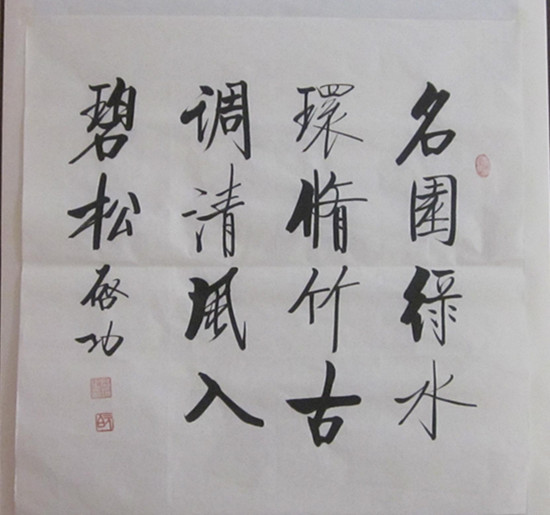 名園綠水
環脩竹古
调清風入
碧松
啓功